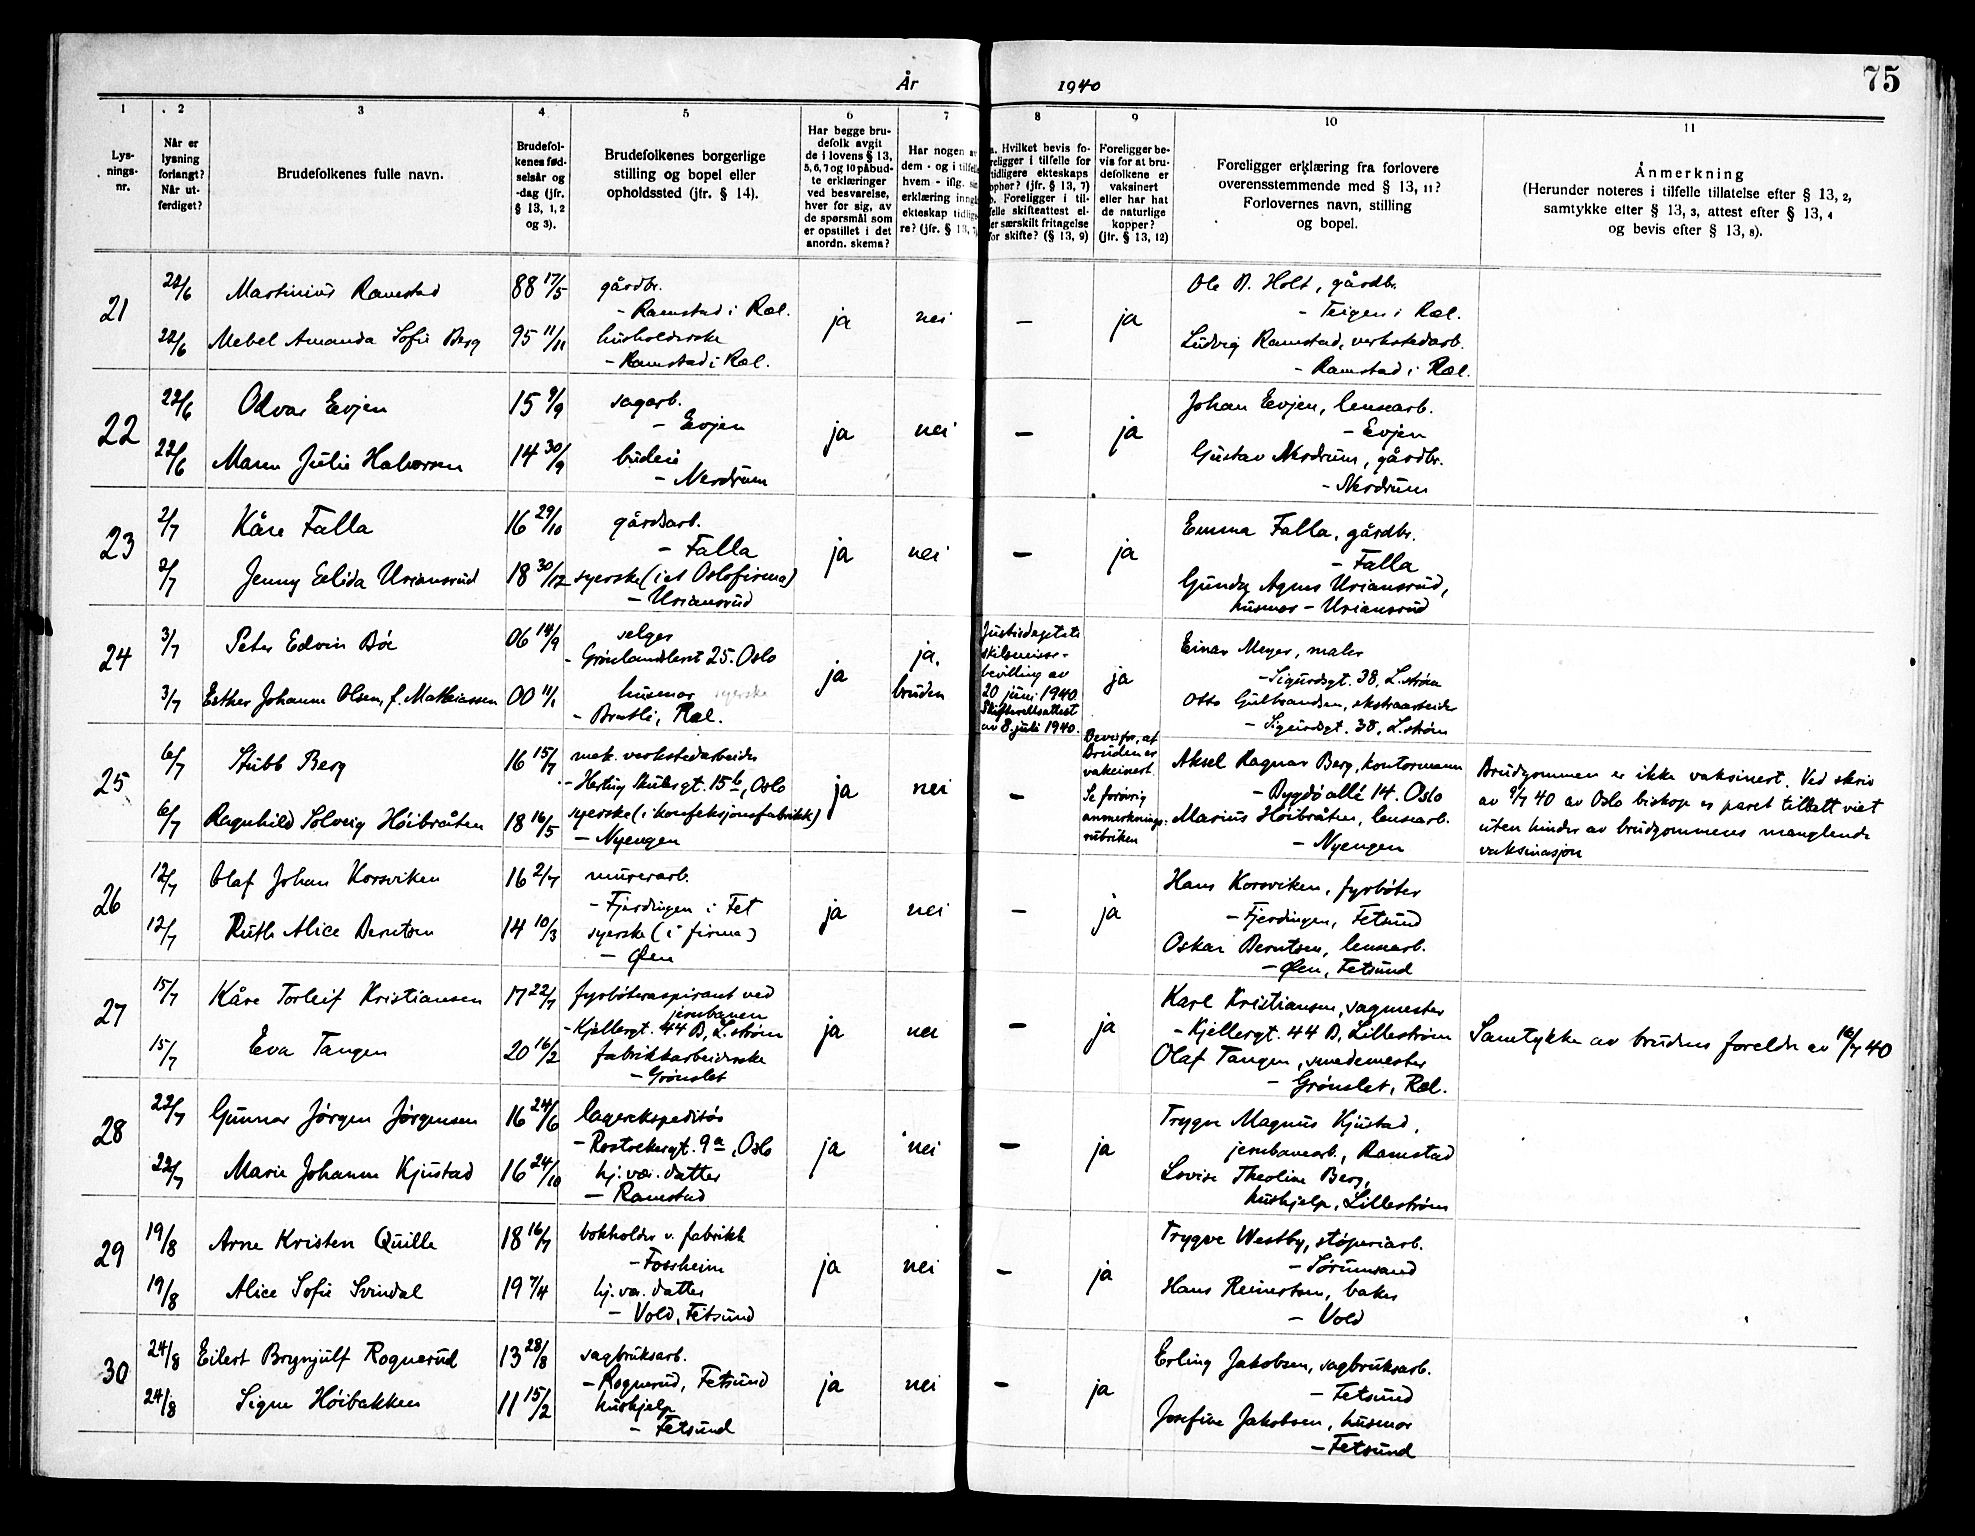 År 1940
75
1
2
3
4
5
6
7
8
9
10
11
Lys-
nings-
nr.
Når er
lysning
forlangt?
Når ut-
ferdiget?
Brudefolkenes fulle navn.
Brudefol-
kenes fød-
selsår og
-dag (jfr.
§ 13, 1,2
og 3).
Brudefolkenes borgerlige
stilling og bopel eller
opholdssted (jfr. § 14).
Har begge bru-
defolk avgit
de i lovens § 13,
5, 6, 7 og 10 påbud-
te erklæringer
ved besvarelse,
hver for sig, av
de spørsmål som
er opstillet i det
anordn. skema?
Har nogen av
dem - og i tilfelle
hvem - iflg. sin
erklæring inngått
ekteskap tidlige-
re? (jfr. § 13, 7)
a. Hvilket bevis fo-
religger i tilfelle for
tidligere ekteskaps
ophør? (jfr. § 13, 7)
b. Foreligger i til-
felle skifteattest el-
ler særskilt fritagelse
for skifte? (§ 13, 9)
Foreligger be-
vis for at bru-
defolkene er
vaksinert
eller har hat
de naturlige
kopper?
(jfr. § 13, 12)
Foreligger erklæring fra forlovere
overensstemmende med § 13, 11?
Forlovernes navn, stilling
og bopel.
Anmerkning
(Herunder noteres i tilfelle tillatelse efter § 13, 2,
samtykke efter § 13, 3, attest efter § 13, 4
og bevis efter § 13, 8).
21
22/6 Martinius Ramstad 88 17/5 gårdbr.
- Ramstad i Ræl.
22/6 Mebel Amanda Sofie Berg 95 11/11 husholderske
- Ramstad i Ræl.
ja nei — ja
Ole D. Holt, gårdbr.
- Teigen i Ræl.
Ludvig Ramstad, verkstedarb.
- Ramstad i Ræl.
22
22/6 Odvar Evjen 15 9/9 sagarb.
- Evjen
22/6 Maren Julie Halvorsen 14 30/9 budeie
- Nerdrum
ja nei — ja
Johan Evjen, lensearb.
- Evjen
Gustav Nerdrum, gårdbr.
- Nerdrum
23
2/7 Kåre Falla 16 29/10 gårdsarb.
- Falla
2/7 Jenny Elida Uriansrud 18 30/12 syerske (i et Oslofirma)
- Uriansrud
ja nei — ja
Emma Falla, gårdbr.
- Falla
Gunda Agnes Uriansrud,
husmor - Uriansrud
24
3/7 Peter Edvin Böe 06 14/9 selger
- Grönlandsleret 25. Oslo
3/7 Esther Johanne Olsen, f. Mathiassen 00 11/1 husmor syerske
- Bratli, Ræl.
ja
ja,
bruden
Justisdeptets
skilsmisse-
bevilling av
20 juni 1940
Skifterettsattest
av 8. juli 1940.
ja
Einar Meyer, maler
- Sigurdsgt. 38, L.strøm
Otto Gulbrandsen, ekstraarbeider
- Sigurdsgt. 38, L.strøm
25
6/7 Stubb Berg 16 15/7 mek. verkstedarbeider
- Hertug Skulesgt. 15 b, Oslo
6/7 Ragnhild Solveig Höibråten 18 16/5 syerske (i konfeksjonsfabrikk)
- Nyengen
ja nei —
Bevis for, at
Bruden er
vaksinert.
Se forøvrig
anmerknings-
rubriken
Aksel Ragnar Berg, kontormann
- Bygdö allé 14. Oslo
Marius Höibråten, lensearb.
- Nyengen
Brudgommen er ikke vaksinert. Ved skriv
av 9/7 40 av Oslo biskop er paret tillatt viet
uten hinder av brudgommens manglende
vaksinasjon
26
12/7 Olaf Johan Korsviken 16 2/7 murerarb.
- Fjerdingen i Fet
12/7 Ruth Alice Berntsen 14 10/3 syerske (i firma)
- Øen
ja nei — ja
Hans Korsviken, fyrbøter
- Fjerdingen, Fetsund
Oskar Berntsen, lensearb.
- Øen, Fetsund
27
15/7 Kåre Torleif Kristiansen 17 22/7 fyrbøteraspirant ved
jernbanen
- Kjellergt. 44 B, L.strøm
15/7 Eva Tangen 20 16/2 fabrikkarbeiderske
- Grönslet
ja nei — ja
Karl Kristiansen, sagmester
- Kjellergt. 44 B, Lilleström
Olaf Tangen, smedemester
- Grönslet, Ræl.
Samtykke av brudens foreldre av 16/7 40
28
22/7 Gunnar Jörgen Jörgensen 16 24/6 lagerekspeditör
- Rostockergt. 9 a, Oslo
22/7 Marie Johanne Kjustad 16 24/10 hj.vær. datter
- Ramstad
ja nei — ja
Trygve Magnus Kjustad,
jernbanearb., Ramstad
Lovise Theoline Berg,
hushjelp, Lilleström
29
19/8 Arne Kristen Quille 18 16/7 bokholder v. fabrikk
- Fossheim
19/8 Alice Sofie Svindal 19 7/4 hj.vær. datter
- Vold, Fetsund
ja nei — ja
Trygve Westby, støperiarb.
- Sørumsand
Hans Reinertsen, baker
- Vold
30
24/8 Eilert Brynjulf Rognerud 13 28/8 sagbruksarb.
- Rognerud, Fetsund
24/8 Signe Höibakken 11 15/2 hushjelp
- Fetsund
ja nei — ja
Erling Jakobsen, sagbruksarb.
- Fetsund
Josefine Jakobsen, husmor
- Fetsund